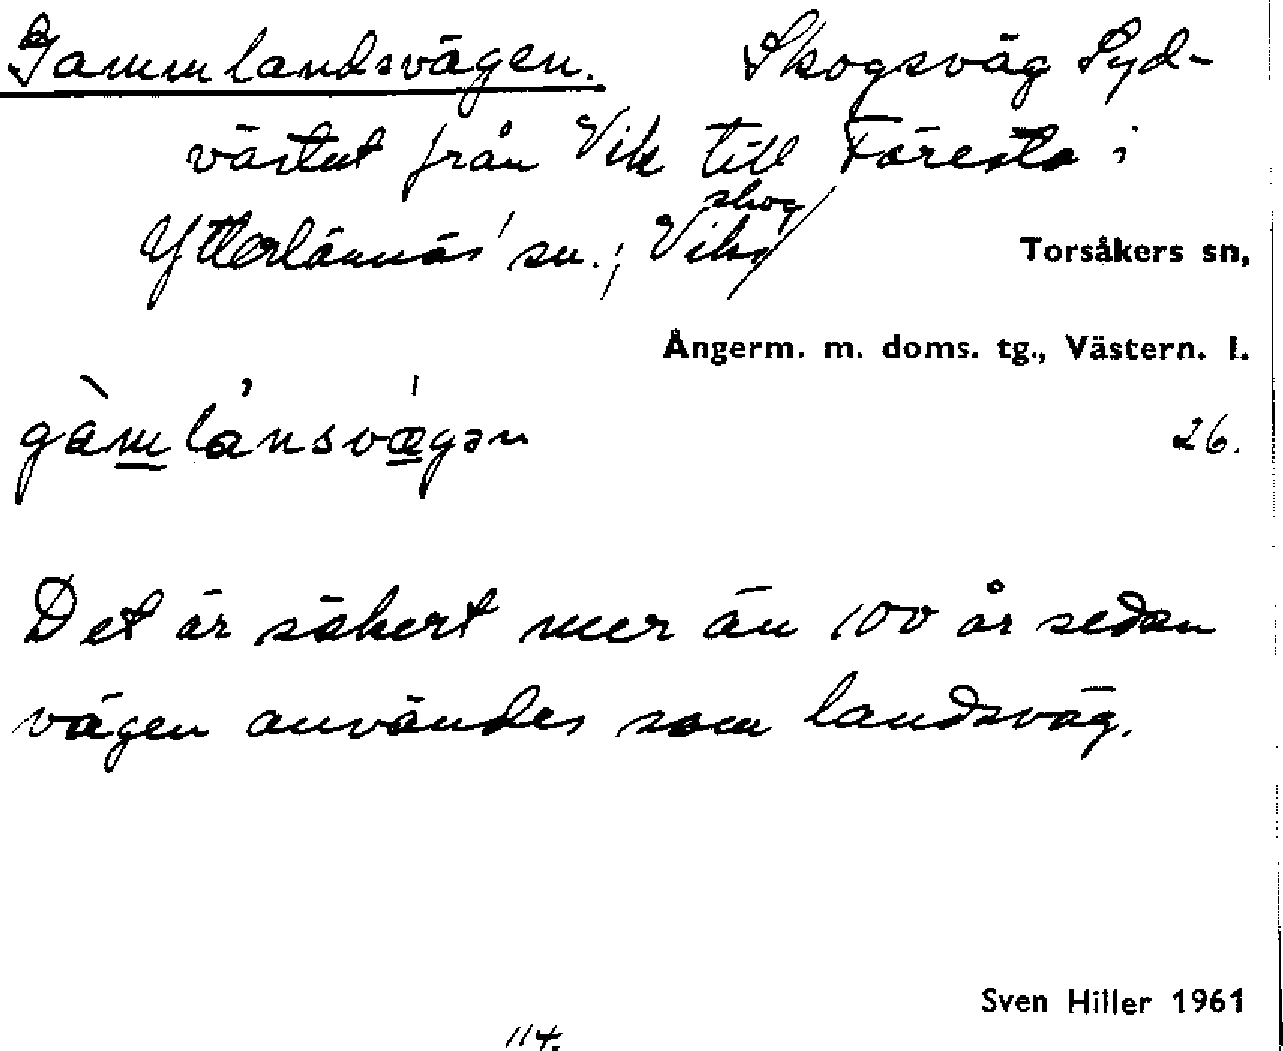 Gammlandsvägen. Skogsväg Syd-
västut från Vik till Föresta i
skog
Ytterlännäs' sn.; Viks
Torsåkers sn,
Ångerm. m. doms. tg., Västern. l.
gàmlånsvægən
26.
Det är säkert mer än 100 år sedan
vägen användes som landsväg.
Sven Hiller 1961
114.